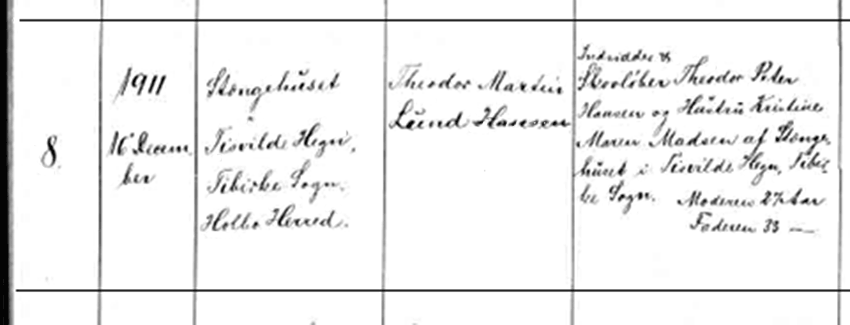 8.
1911
16 Decem
ber
Stængehuset
i
Tisvilde Hegn,
Tibirke Sogn.
Holbo Herred.
Theodor Martin
Lund Hansen
Skovløber Theodor Peter
Hansen og Hustru Kristine
Maren Madsen af Stænge,
huset i Tisvilde Hegn, Tibir,
ke Sogn. Moderen 27 Aar
Faderen 33 —